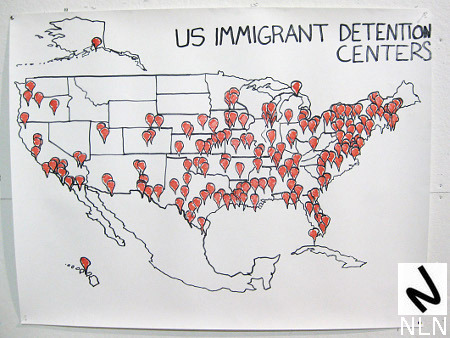 US IMMIGRANT DETENTION
CENTERS
N
NLN